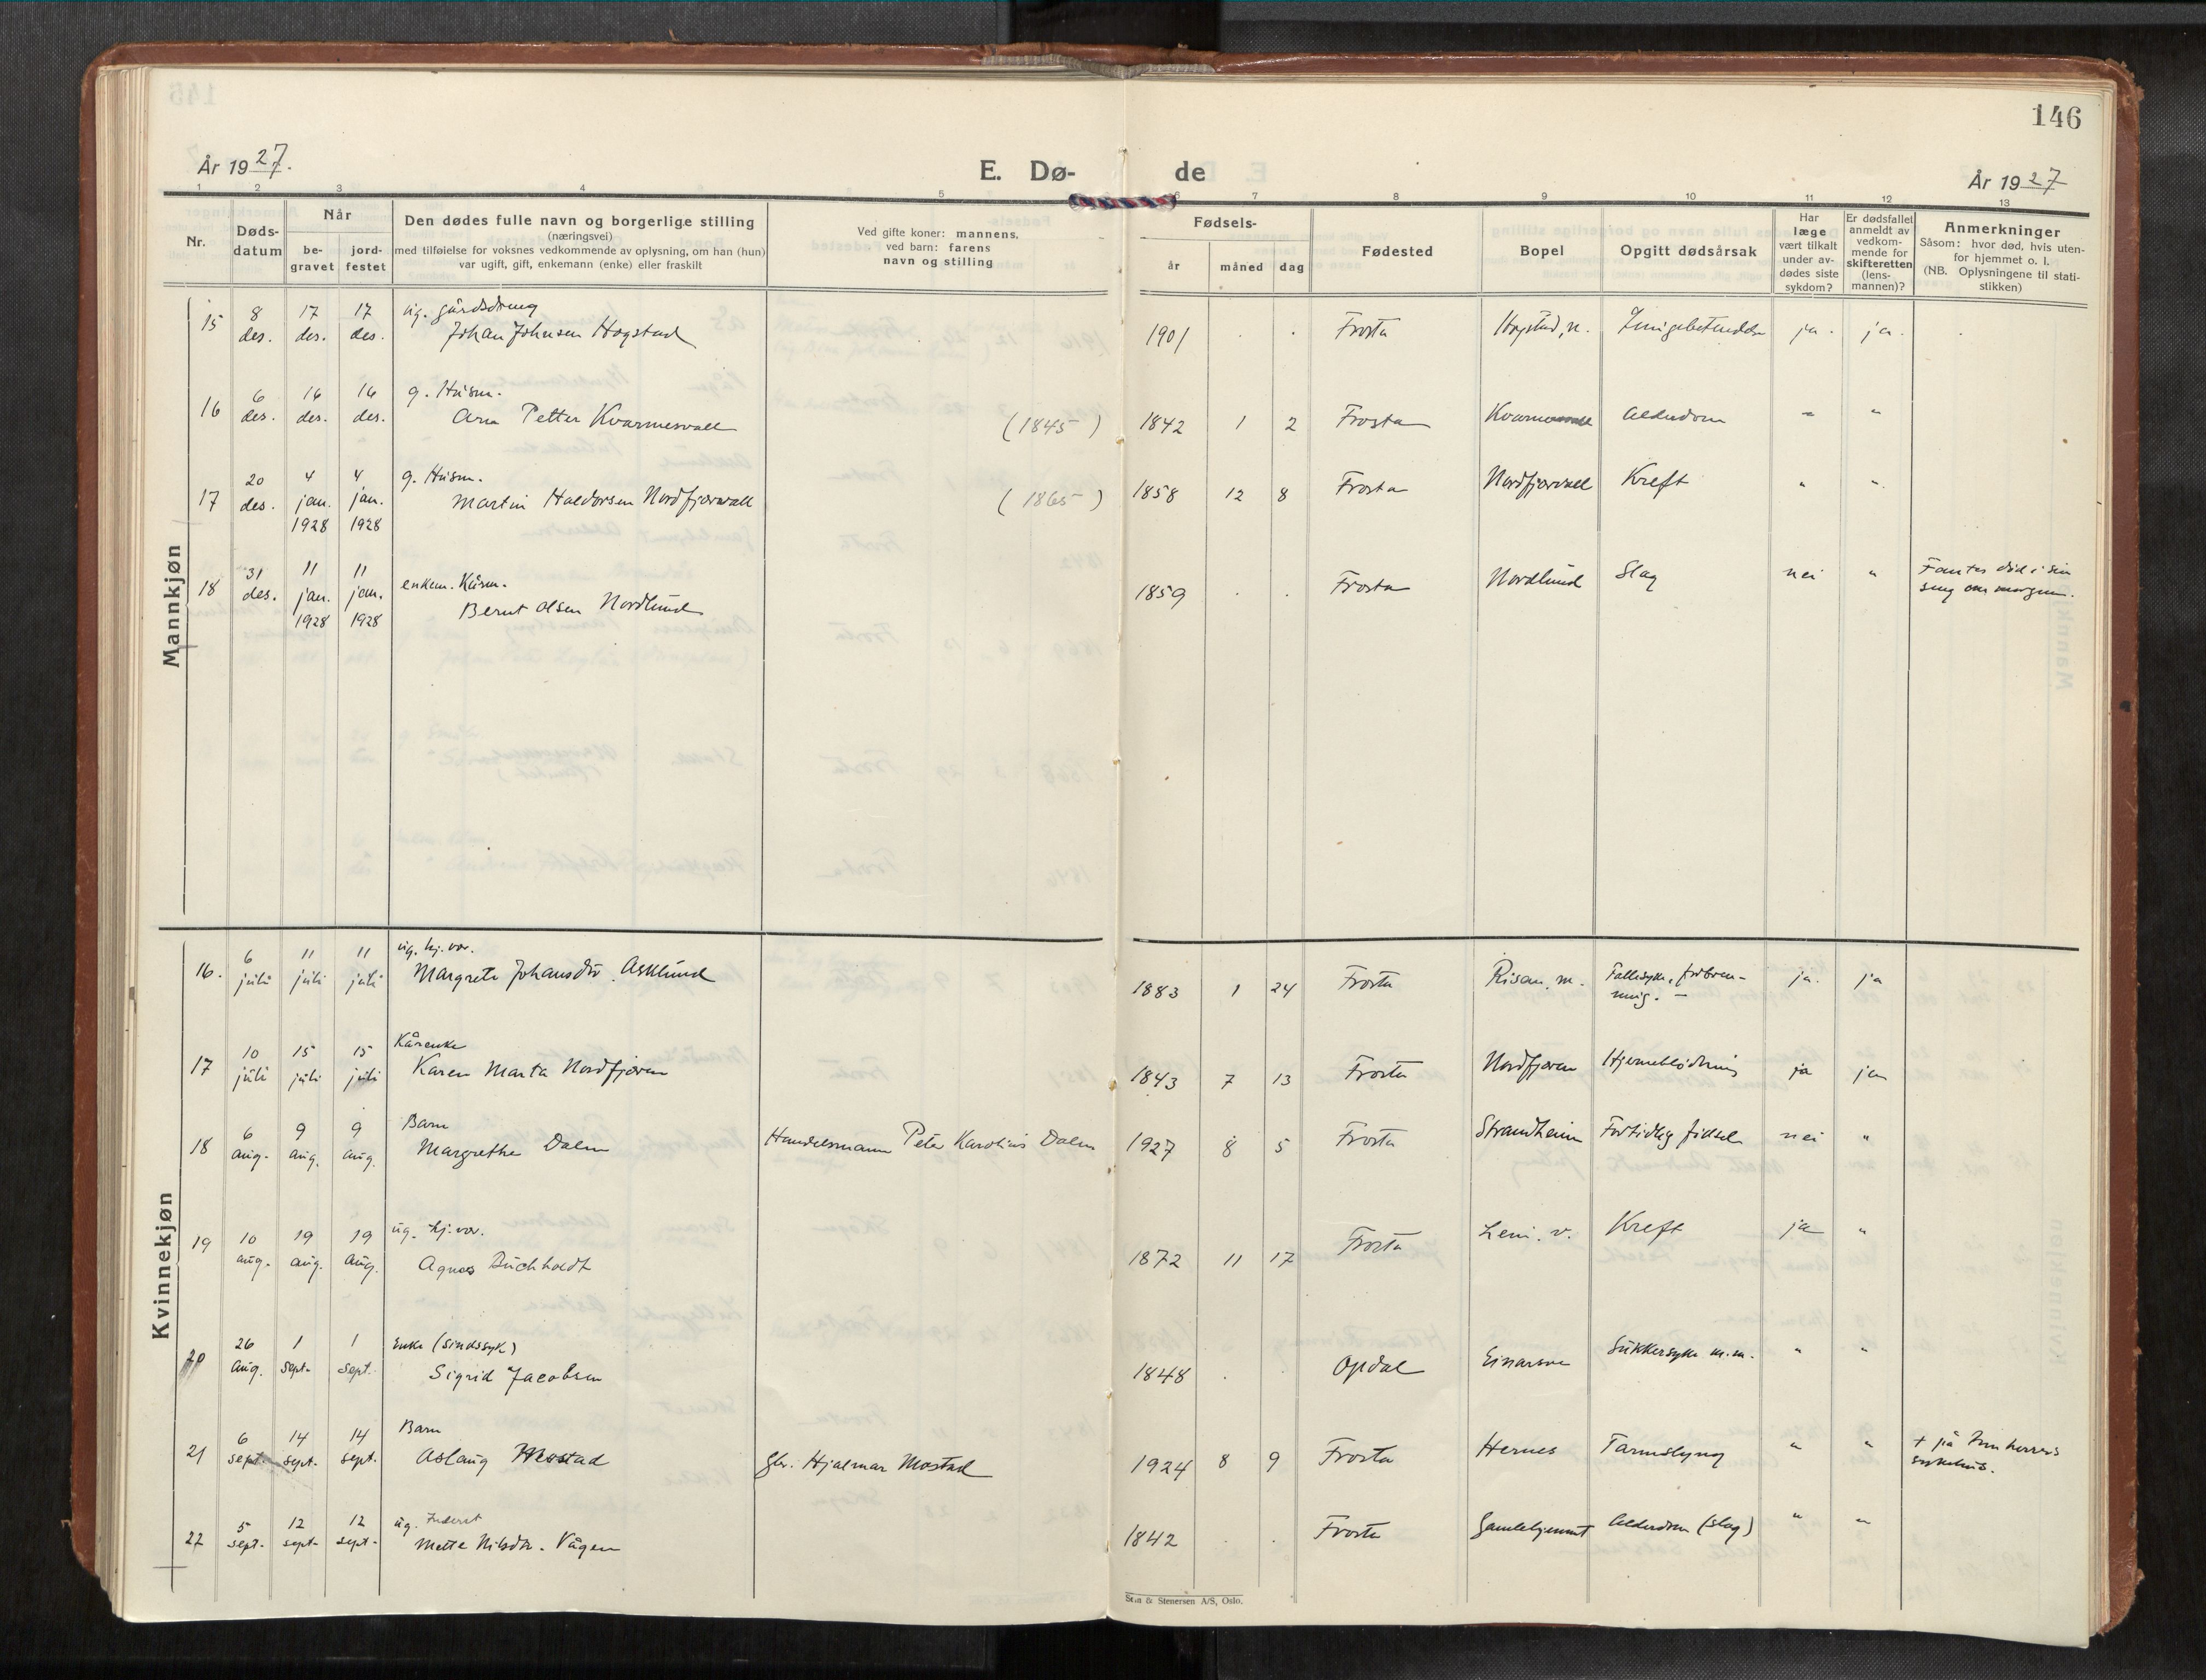 146
År 1927.
E. Dø-
de
År 1927
1 2 3 4 5 6 7 8 9 10 11 12 13
Nr.
Døds-
datum
Når
be-
gravet
jord-
festet
Den dødes fulle navn og borgerlige stilling
(næringsvei)
med tilføielse for voksnes vedkommende av oplysning, om han (hun)
var ugift, gift, enkemann (enke) eller fraskilt
Ved gifte koner: mannens,
ved barn: farens
navn og stilling
Fødsels-
år
måned
dag
Fødested
Bopel
Opgitt dødsårsak
Har
læge
vært tilkalt
under av-
dødes siste
sykdom?
Er dødsfallet
anmeldt av
vedkom-
mende for
skifteretten
(lens-
mannen)?
Anmerkninger
Såsom: hvor død, hvis uten-
for hjemmet o. l.
(NB. Oplysningene til stati-
stikken)
Mannkjøn
15 8 des. 17 des. 17 des. ug. gårdsdreng
Johan Johnsen Hogstad 1901 Frosta Hogstad, n. Lungebetendelse ja. ja.
16 6 des. 16 des. 16 des. g. Husm.
Petter Kvarmesvall (1845) 1842 1 2 Frosta Alderdom " "
17 20 des. 4 jan. 1928 4 jan. 1928 g. Husm.
Martin Haldorsen Nordfjærvall (1865) 1858 12 8 Frosta Nordfjærvall Kreft " "
18 31 des. 11 jan. 1928 11 jan. 1928 enkem. Kårm.
Bernt Olsen Nordlund 1859 Frosta Nordlund Slag nei " Fantes død i sin
seng om morgen.
Kvinnekjøn
16. 6 juli 11 juli 11 juli ug. hj. vær.
Margrete Johansdtr. Asklund 1883 1 24 Frosta Risan, m. Fallesyke, forbren-
ning. - ja. ja
17 10 juli 15 juli 15 juli Kårenke
Karen Marta Nordfjæren 1843 7 13 Frosta Nordfjæren Hjerneblødning ja ja
18 6 aug. 9 aug. 9 aug. Barn
Margrethe Dalen Handelsmann Peter Karolius Dalen 1927 8 5 Frosta Strandheim Fortidlig fødsel nei "
19 10 aug. 19 aug. 19 aug. ug. hj. vær.
Agnes Buchholdt 1872 11 17 Frosta Lein. v. Kreft ja "
20 26 aug. 1 sept. 1 sept. Enke (sindssyk)
Sigrid Jacobsen 1848 Opdal Einarsve Sukkersyke m.m. " "
21 6 sept. 14 sept. 14 sept. Barn
Aslaug Mostad Gbr. Hjalmar Mostad 1924 8 9 Frosta Hernes Tarmslyng " " + på Innherreds
sykehus.
22 5 sept. 12 sept. 12 sept. ug. Inderst
Mette Nilsdtr. Vågen 1842 Frosta Gamlehjemmet Alderdom (slag) " "
Sten & Stenersen A/S, Oslo.